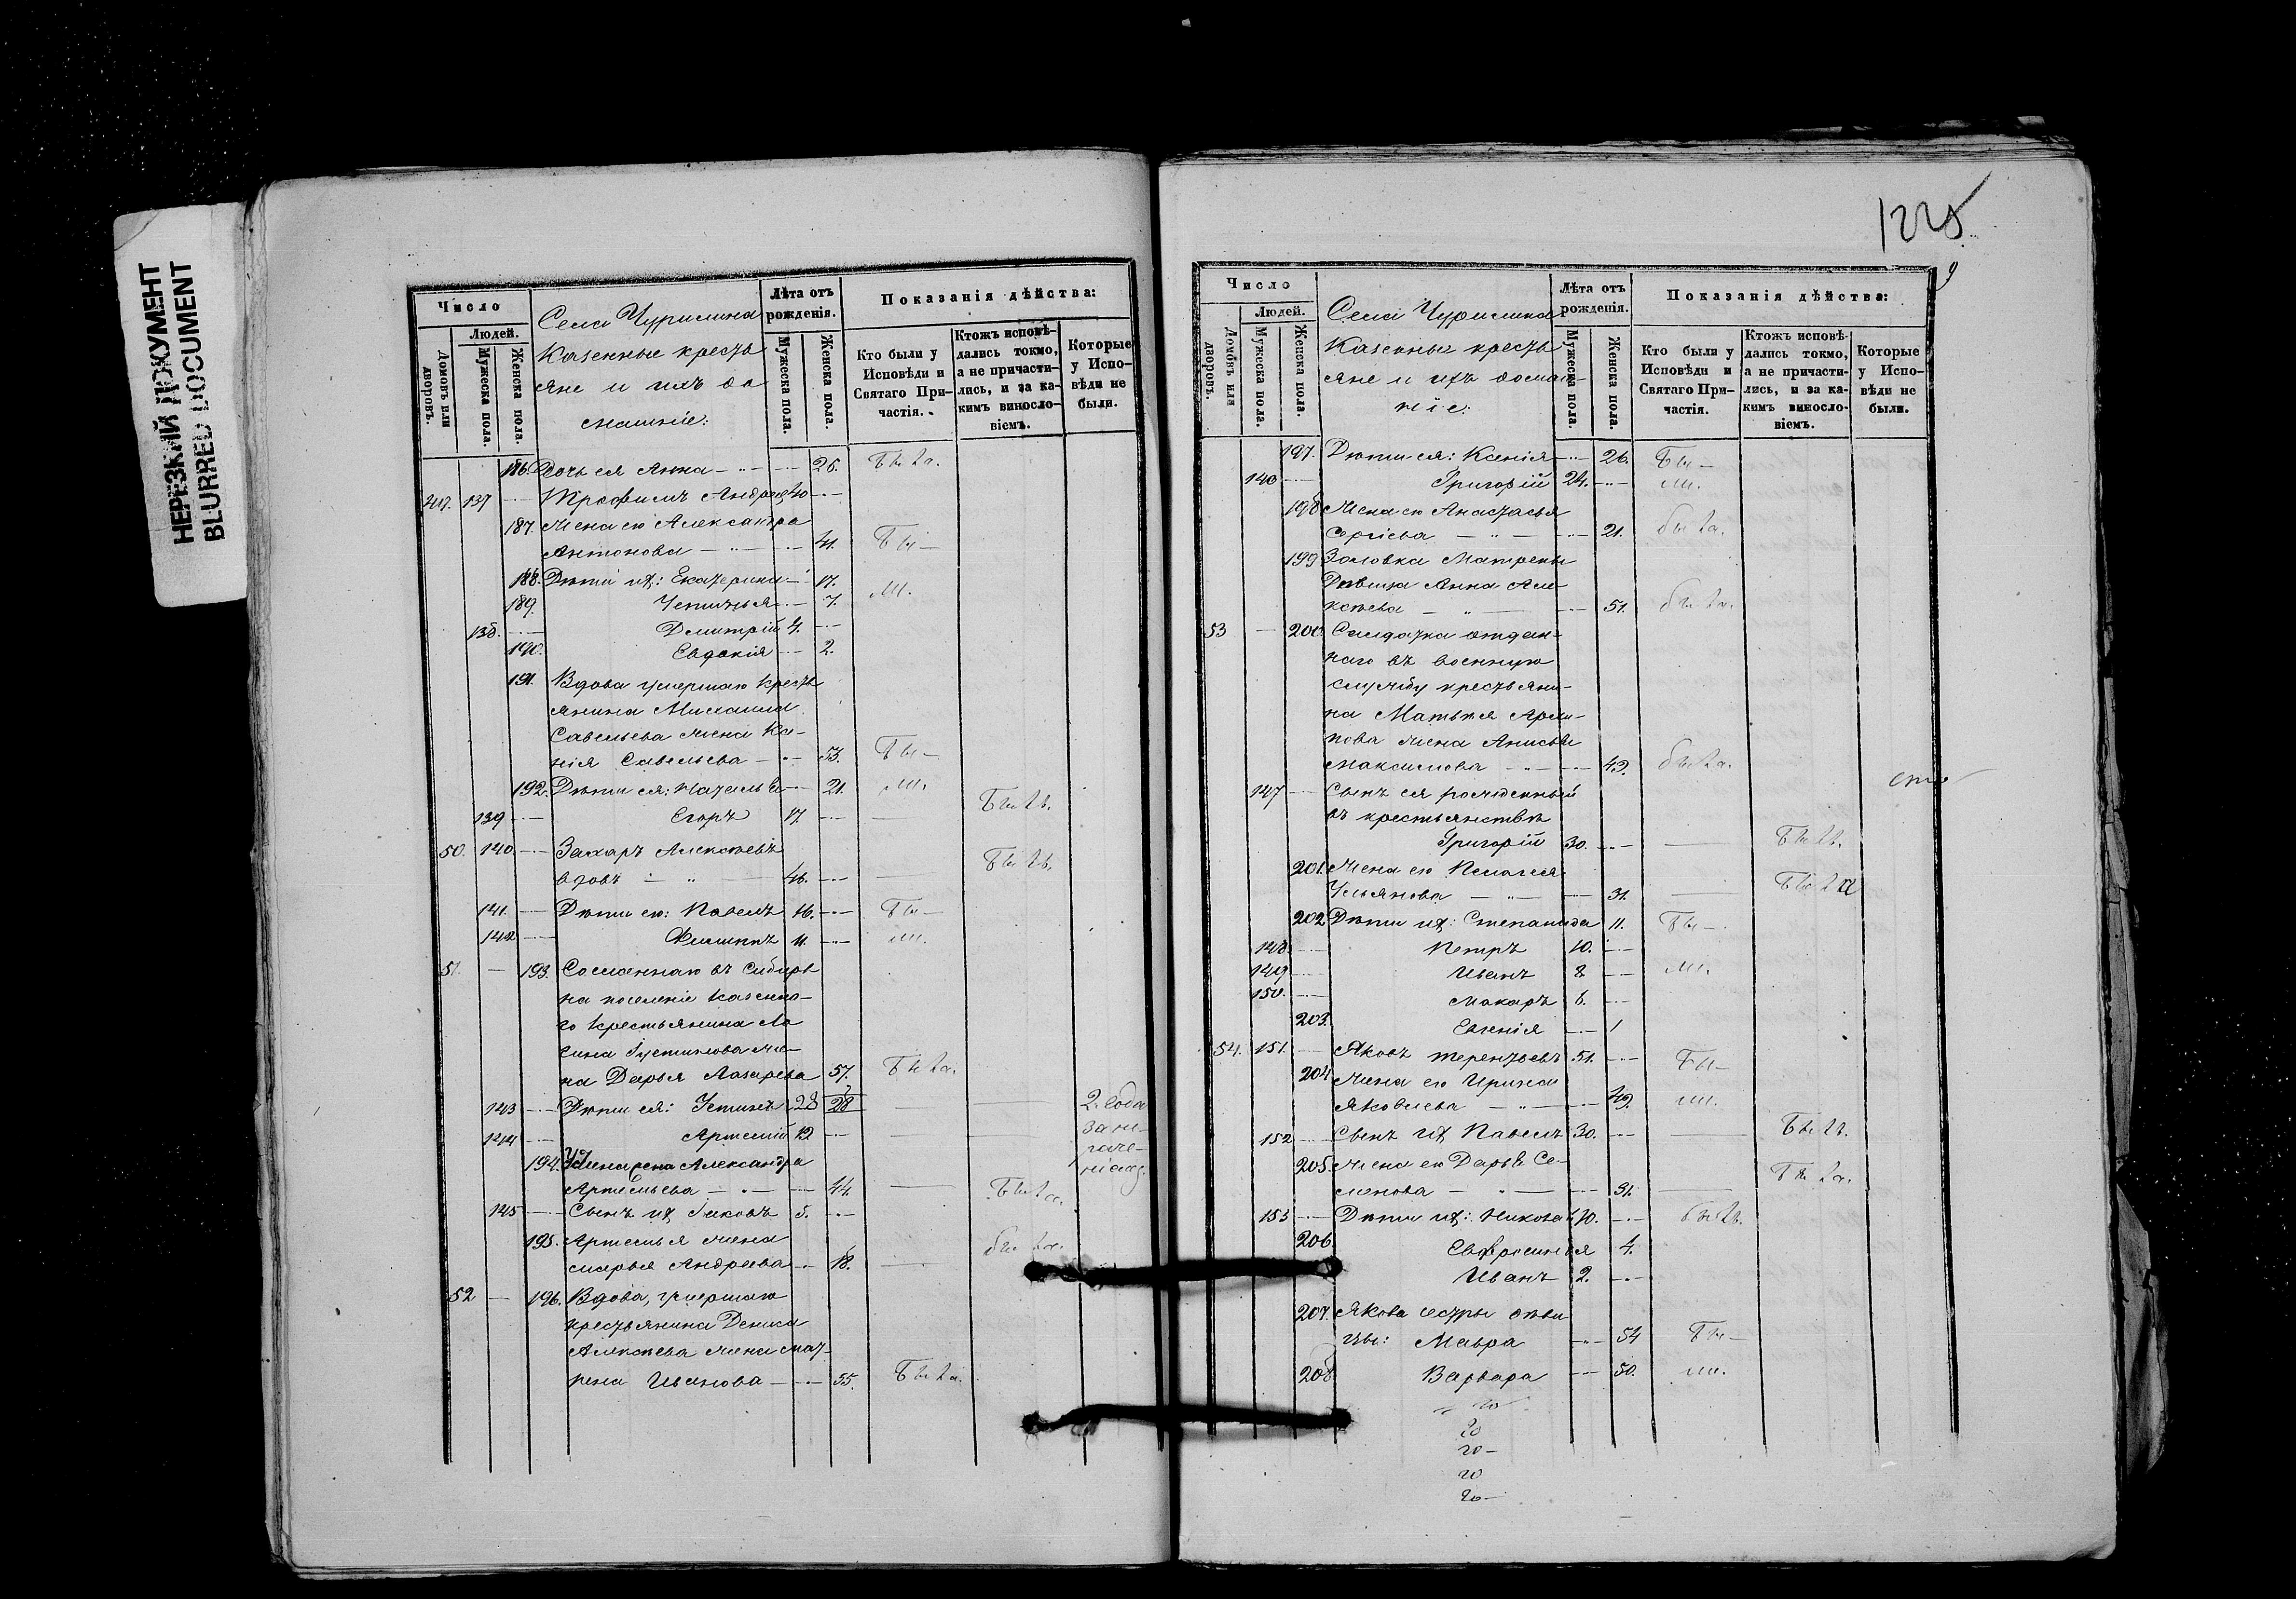 НЕРЕЗКИЙ ДОКУМЕНТ
BLURRED DOCUMENT
Число
Людей.
Домовъ или дворовъ.
Мужеска пола.
Женска пола.
Села Чурилина
Казенные кресть
яне и ихъ до
машніе:
Лѣта отъ рожденія.
Мужеска пола.
Женска пола.
Показанія дѣйства:
Кто были у Исповѣди и Святаго Причастія.
Ктожъ исповѣдались токмо, а не причастились, и за какимъ винословіемъ.
Которые у Исповѣди не были.
186. Дочь ея Анна 26. Была.
137 Трофимъ Андреевъ 40
187. Жена его Александра
Антонова 41. Бы-
188. Дѣти ихъ: Екатерина 17. ли.
189. 7.
138. Дмитрій 4.
190. Евдокія 2.
191. Вдова умершаго кресть
янина Михаила
Савельева жена Ка-
нія Савельева 53. Бы-
192. Дѣти ея: 21. ли.
139 Егоръ 17. Былъ.
50. 140 Захаръ Алексѣевъ
вдовъ 46. Былъ.
141. Дѣти его: Павелъ 16. Бы-
142 Филиппъ 11. ли.
51. 193. Сосланнаго въ Сибирь
на поселеніе казенна-
го крестьянина
жe-
на Дарья Лазарева 57. Была.
143 Дѣти ея: Устинъ 28 28 2. года
144 Артемій 19 за не-
194. Устина жена Александра
Артемьева 44. Была.
145 Сынъ ихъ Яковъ 5.
195. Артемья жена
Марья Андреева 18. была.
52 196. Вдова, умершаго
крестьянина Дениса
Алексѣева жена Мат-
рена Иванова 55. Была.
1225
9
Число
Людей.
Домовъ или дворовъ.
Мужеска пола.
Женска пола.
Села Чурилина
Казенные кресть
яне и ихъ домаш-
ніе:
Лѣта отъ рожденія.
Мужеска пола.
Женска пола.
Показанія дѣйства:
Кто были у Исповѣди и Святаго Причастія.
Ктожъ исповѣдались токмо, а не причастились, и за какимъ винословіемъ.
Которые у Исповѣди не были.
197. Дѣти ея: Ксенія 26. Бы-
Григорій 24. ли.
198 Жена его Анастасья
Сергіева 21. была.
199 Золовка Матрены
Дѣвица Анна Але-
ксѣева 51. была.
53 200. Солдатка отдан-
наго въ военную
службу крестьяни-
на Матвѣя Архи-
пова жена Анисья
Максимова 49. была.
147 Сынъ ея рожденный
въ крестьянствѣ
Григорій 30. Былъ.
201. Жена его Пелагея
Ульянова 31. Была
202 Дѣти ихъ: Степанида 11. Бы-
148. Петръ 10.
149 Иванъ 8 ли.
150. Макаръ 6.
203. Евгенія 1
54. 151. Яковъ Терентьевъ 51. Бы-
204 Жена его Ирина
Яковлева 49. ли.
152 Сынъ ихъ Павелъ 30. Былъ.
205. Жена его Дарья Се-
менова 31. Была.
153 Дѣти ихъ: Николай 10. Былъ.
206. Евфросинья 4.
Иванъ 2.
207. Якова сестры дѣви
цы: Мавра 54 Бы-
208 Варвара 50. ли.
20
20
20-
20
20-